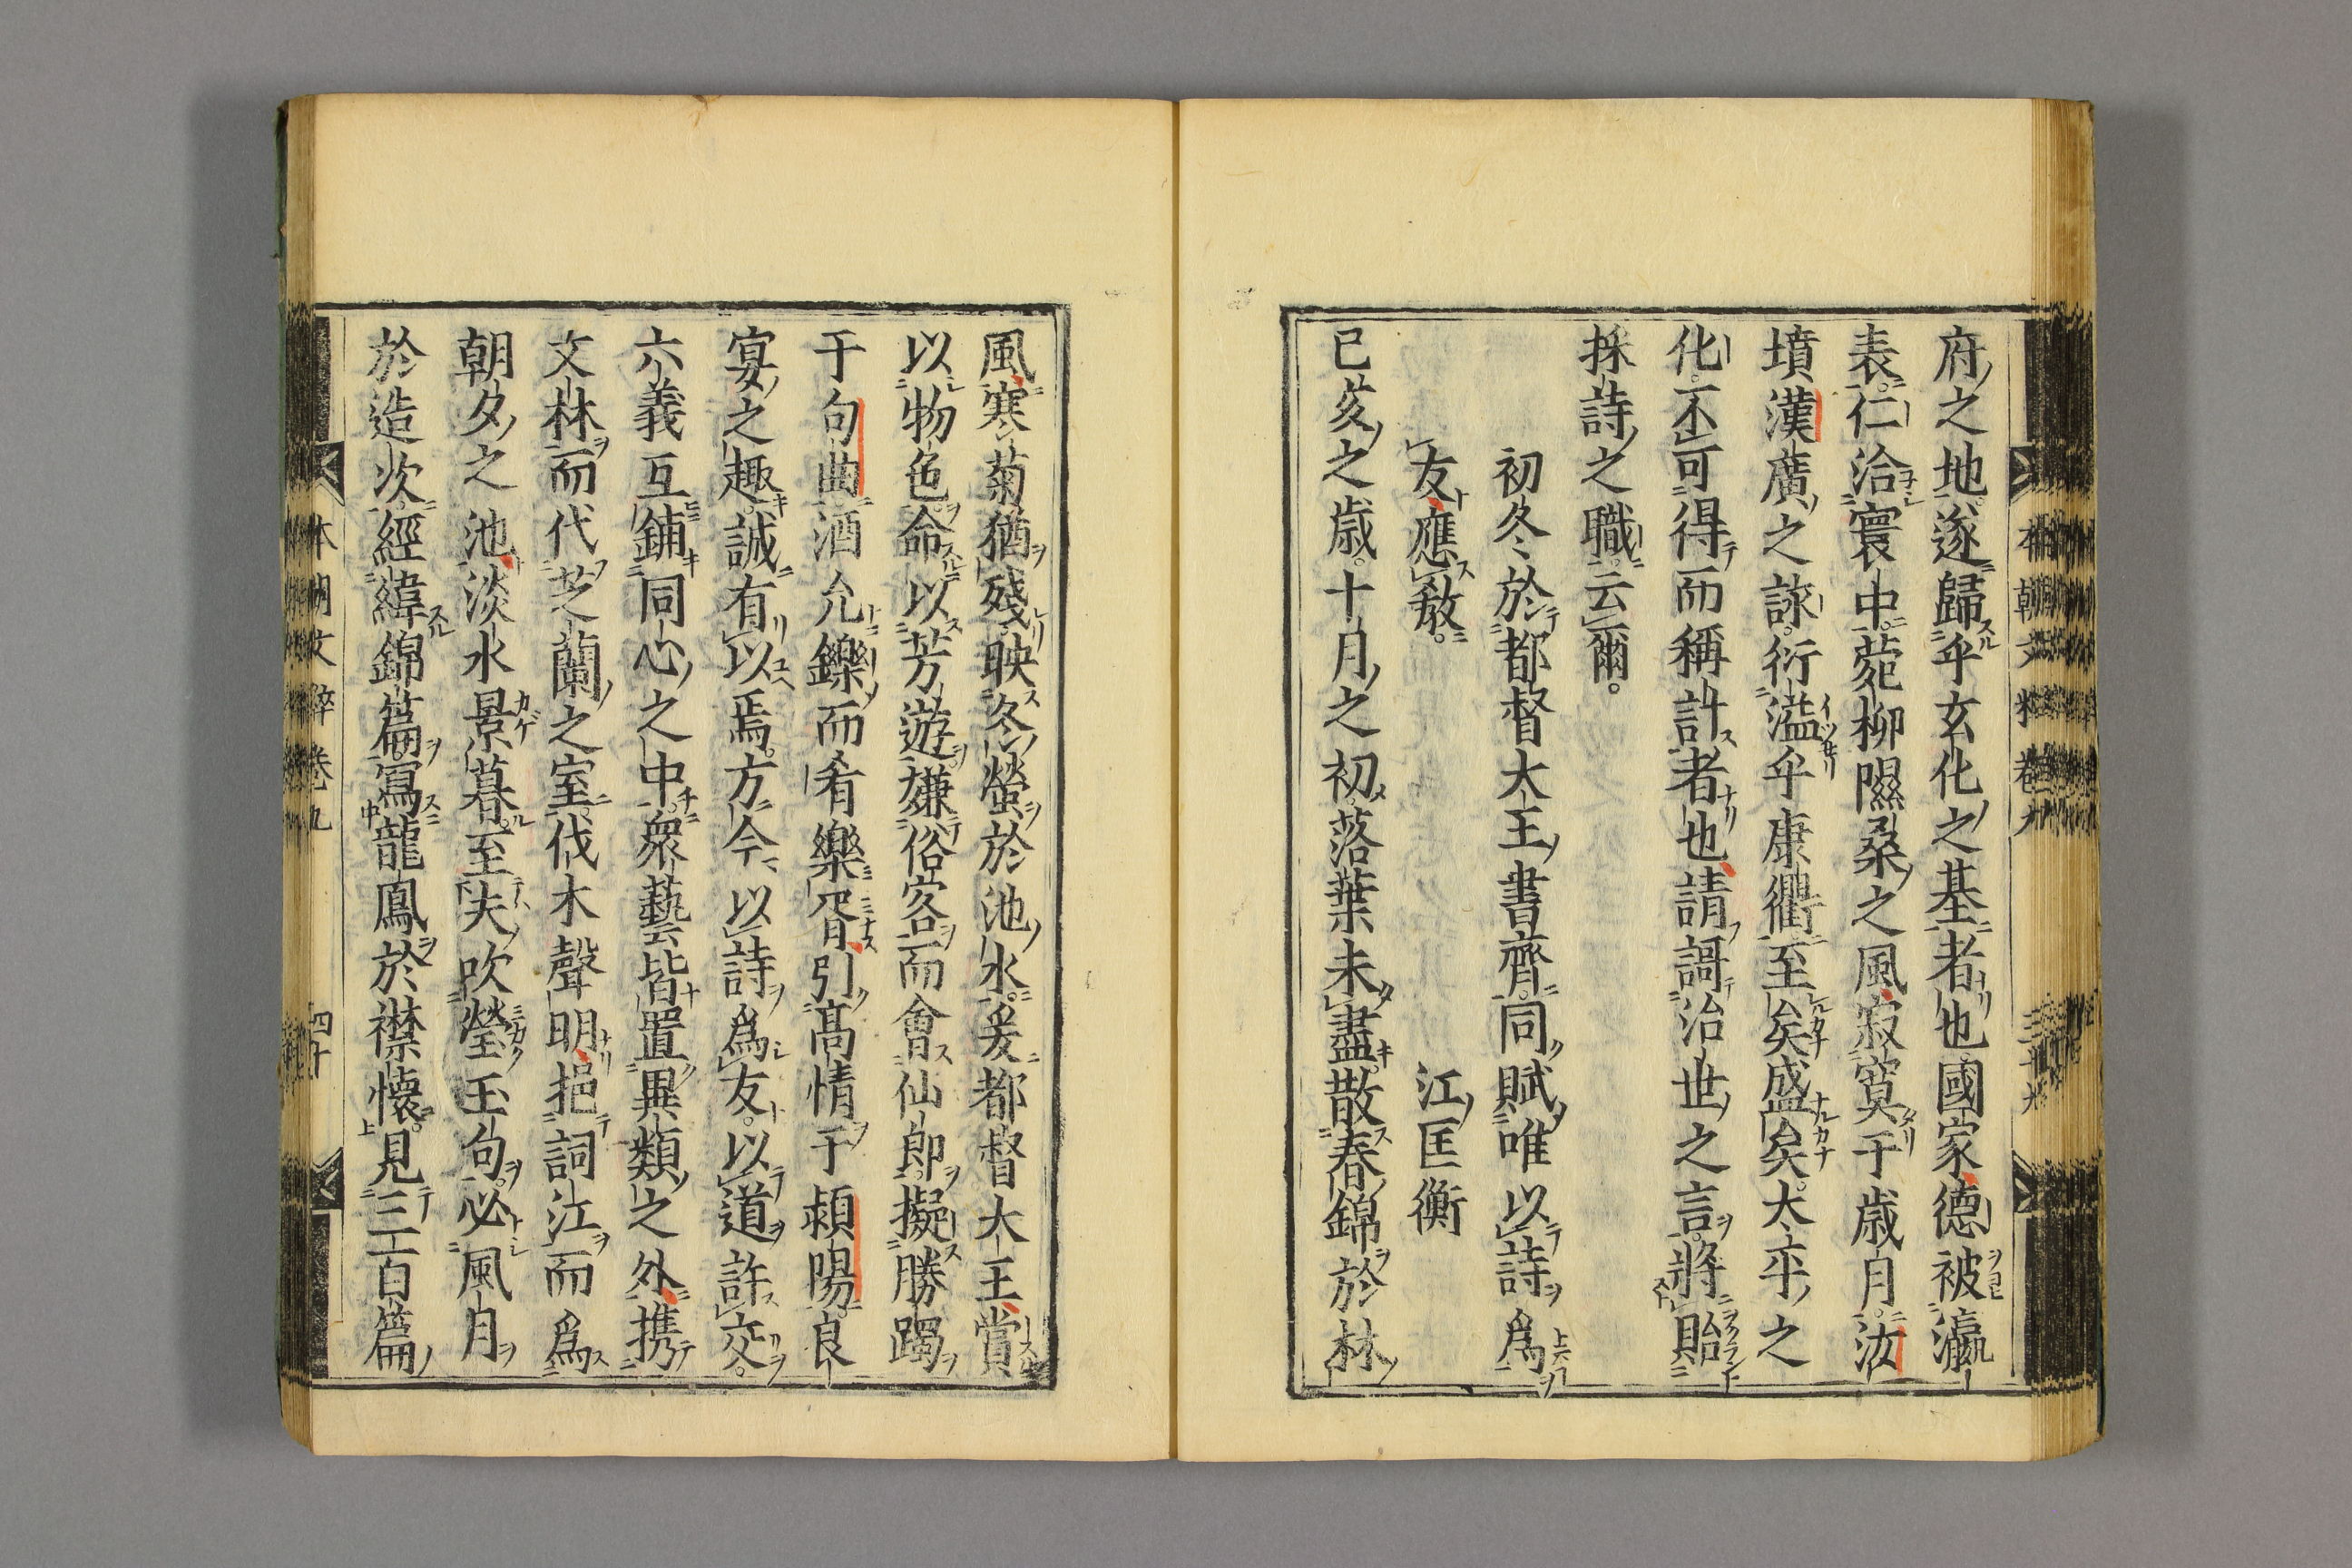 府之地遂歸乎玄化之基者也國家德被瀛
表仁洽寰中菀柳隰桑之風寂寞于歲月汝
墳漢廣之詠衍溢乎康衢至矣盛矣大平之
化不可得而稱計者也請謌治世之言將貽
採詩之職云爾
初冬於都督大王書齋同賦唯以詩爲
友應教　江匡衡
已亥之歲十月之初落葉未盡散春錦於林
本朝文粹卷九　三十九
風寒菊猶殘映冬螢於池水爰都督大王賞
以物色命以芳遊嫌俗客而會仙郎擬勝躅
于句曲酒允鑠而肴樂胥引高情于潁陽良
宴之趣誠有以焉方今以詩爲友以道許交
六義互鋪同心之中衆藝皆置異類之外携
文林而代芝蘭之室伐木聲明挹詞江而爲
朝夕之池淡水景暮至夫吹瑩玉句必風月
於造次經緯錦篇寫龍鳳於襟懷見三百篇
本朝文粹卷九　四十